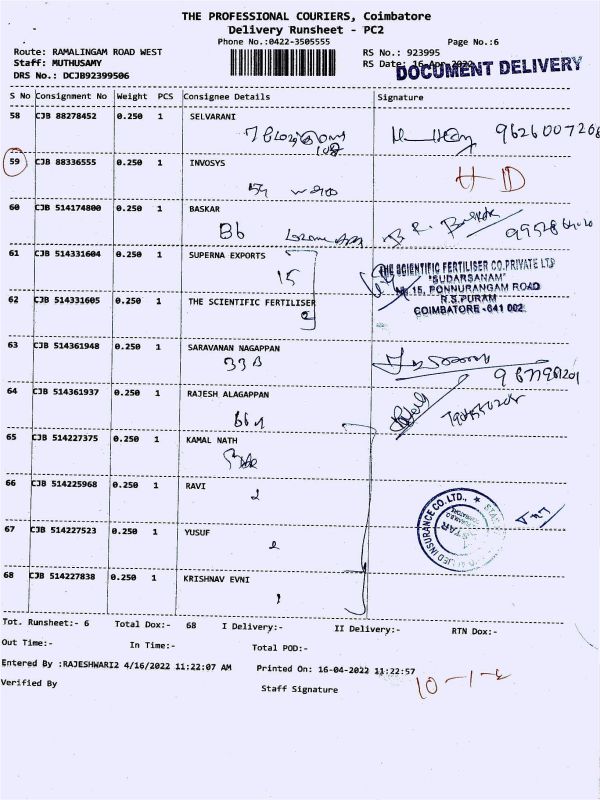 THE PROFESSIONAL COURIERS, Coimbatore
Delivery Runsheet - PC2
Phone No.:0422-3505555
Page No.:6
Route: RAMALINGAM ROAD WEST
RS No.: 923995
Staff: MUTHUSAMY
RS Date: 16-Apr-2022
DRS No.: DCJB92399506
DOCUMENT DELIVERY
S No Consignment No Weight PCS Consignee Details Signature
58 CJB 88278452 0.250 1 SELVARANI
9626007268
59 CJB 88336555 0.250 1 INVOSYS
HD
60 CJB 514174800 0.250 1 BASKAR
B6
61 CJB 514331604 0.250 1 SUPERNA EXPORTS
15
THE SCIENTIFIC FERTILISER CO.PRIVATE LTD
"SUDARSANAM"
No.15, PONNURANGAM ROAD
R.S.PURAM
COIMBATORE-641 002.
62 CJB 514331605 0.250 1 THE SCIENTIFIC FERTILISER
2
63 CJB 514361948 0.250 1 SARAVANAN NAGAPPAN
33 B
64 CJB 514361937 0.250 1 RAJESH ALAGAPPAN
65 CJB 514227375 0.250 1 KAMAL NATH
66 CJB 514225968 0.250 1 RAVI
2
67 CJB 514227523 0.250 1 YUSUF
2
68 CJB 514227838 0.250 1 KRISHNAV EVNI
Tot. Runsheet:- 6 Total Dox:- 68 I Delivery:- II Delivery:- RTN Dox:-
Out Time:- In Time:- Total POD:-
Entered By :RAJESHWARI2 4/16/2022 11:22:07 AM Printed On: 16-04-2022 11:22:57
Verified By Staff Signature